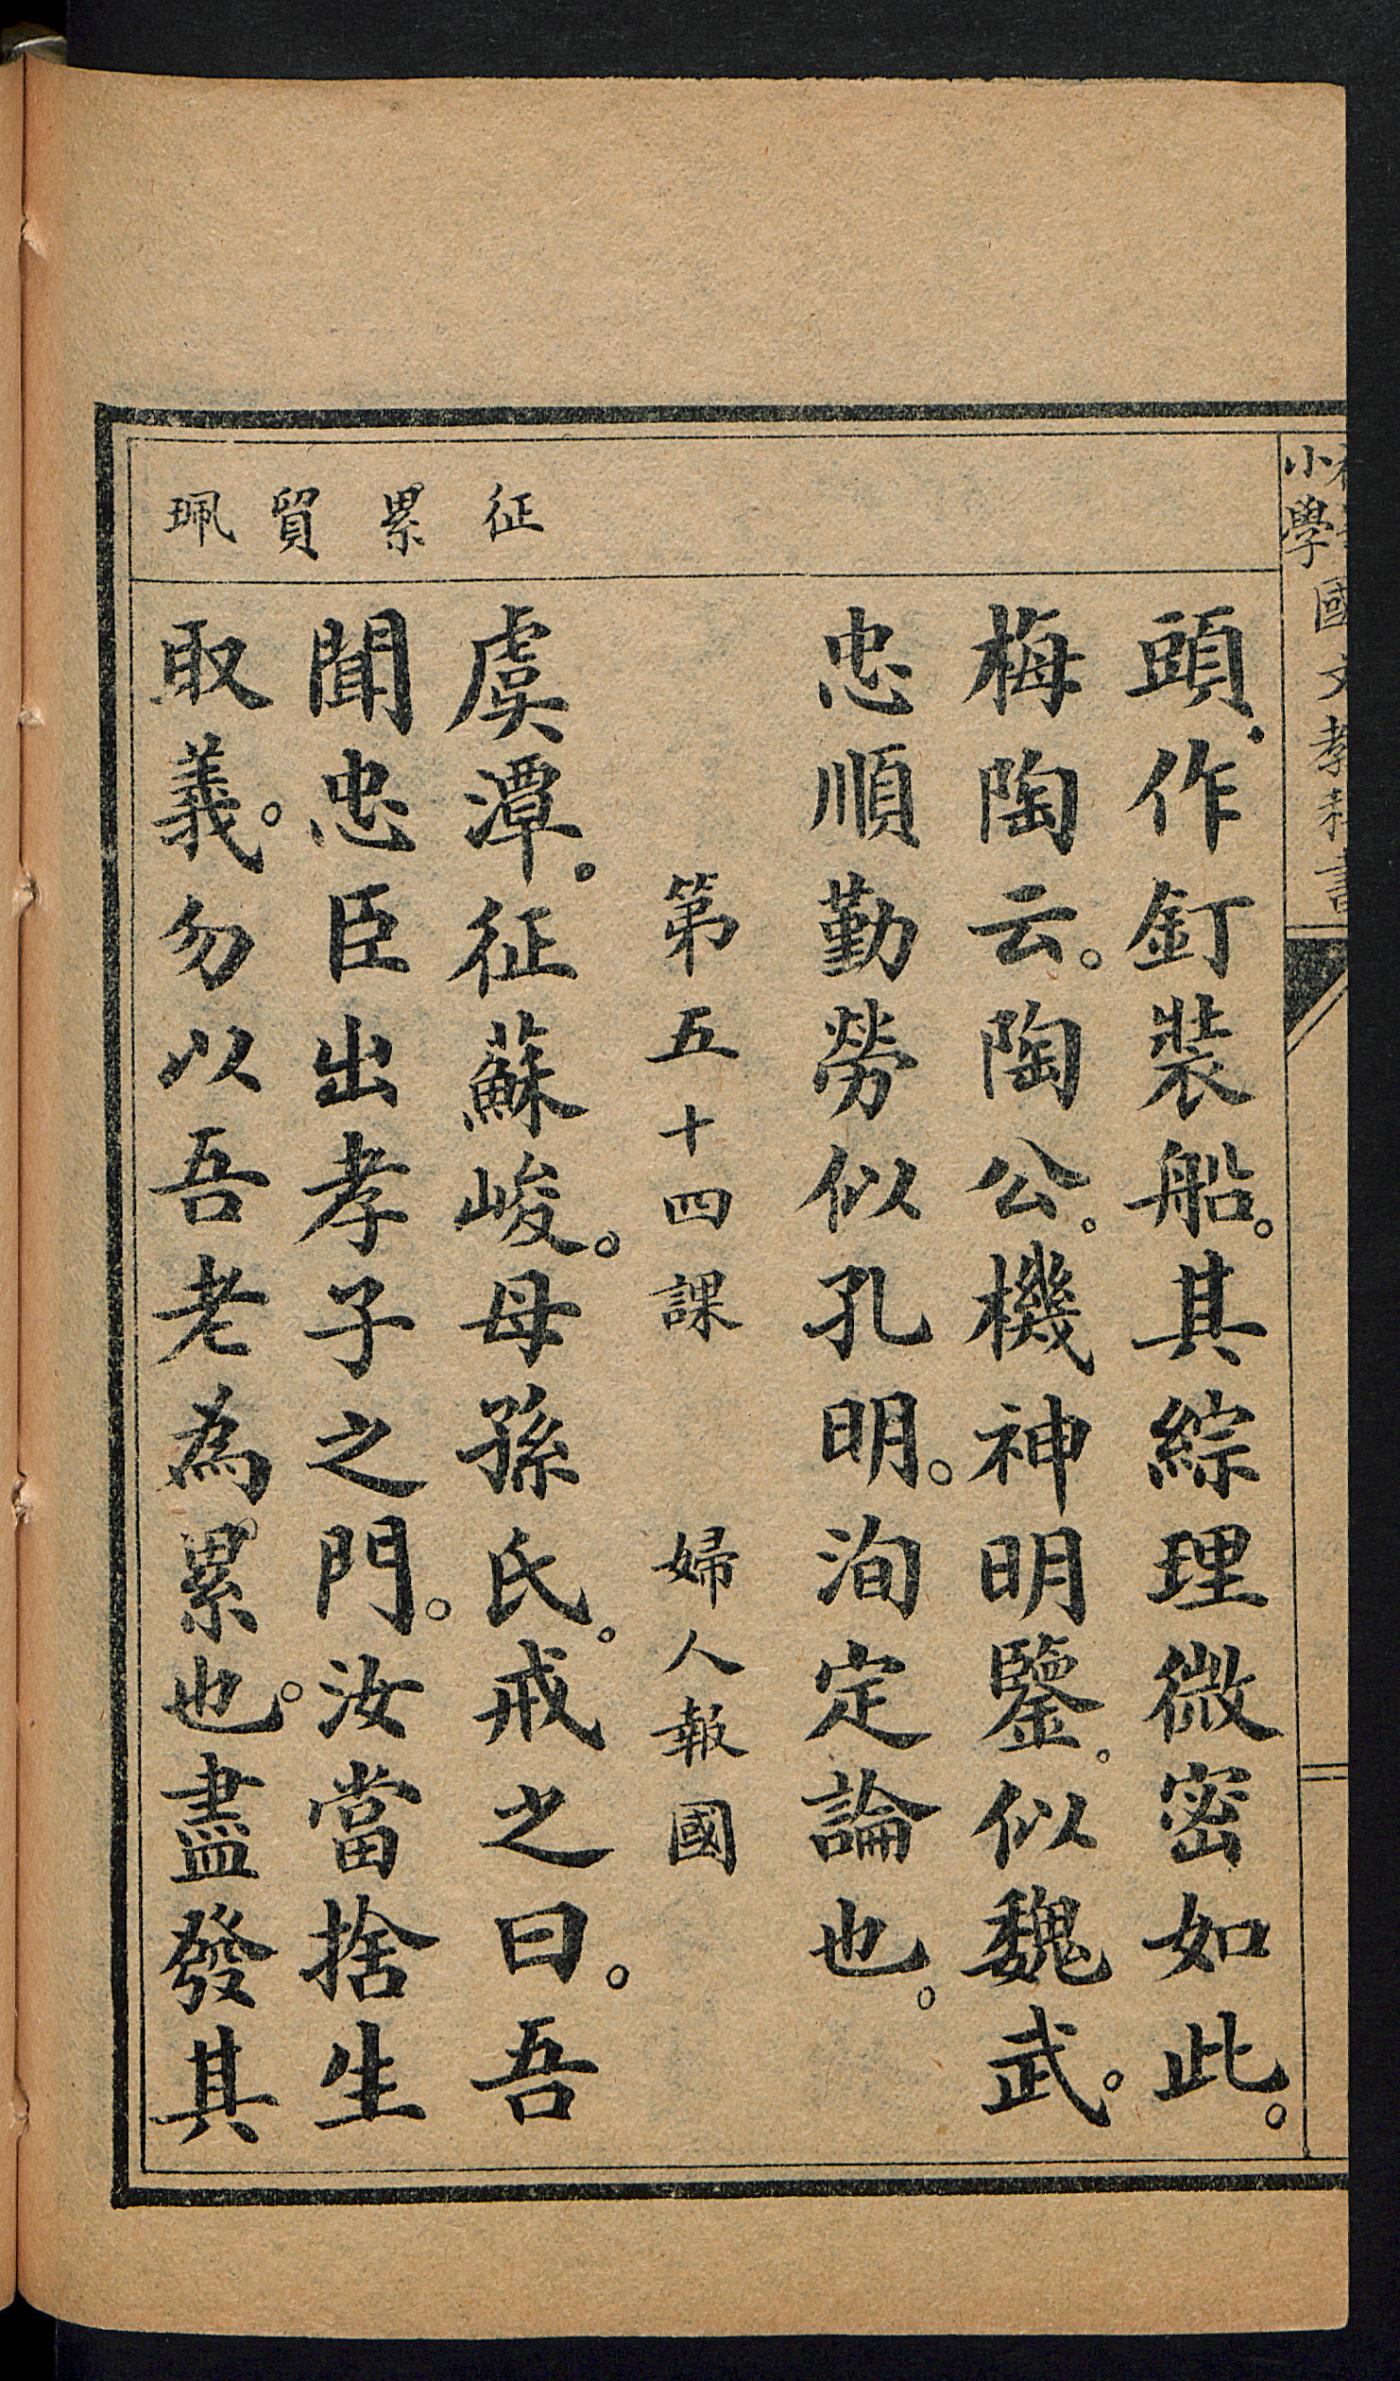 小學國文教科書
征 累 貿 珮
頭．作釘裝船。其綜理微密如此。
梅陶云。陶公。機神明鑒。似魏武。
忠順勤勞似孔明。洵定論也。
第五十四課　婦人報國
虞潭．征蘇峻。母孫氏。戒之曰。吾
聞忠臣出孝子之門。汝當捨生
取義。勿以吾老為累也。盡發其